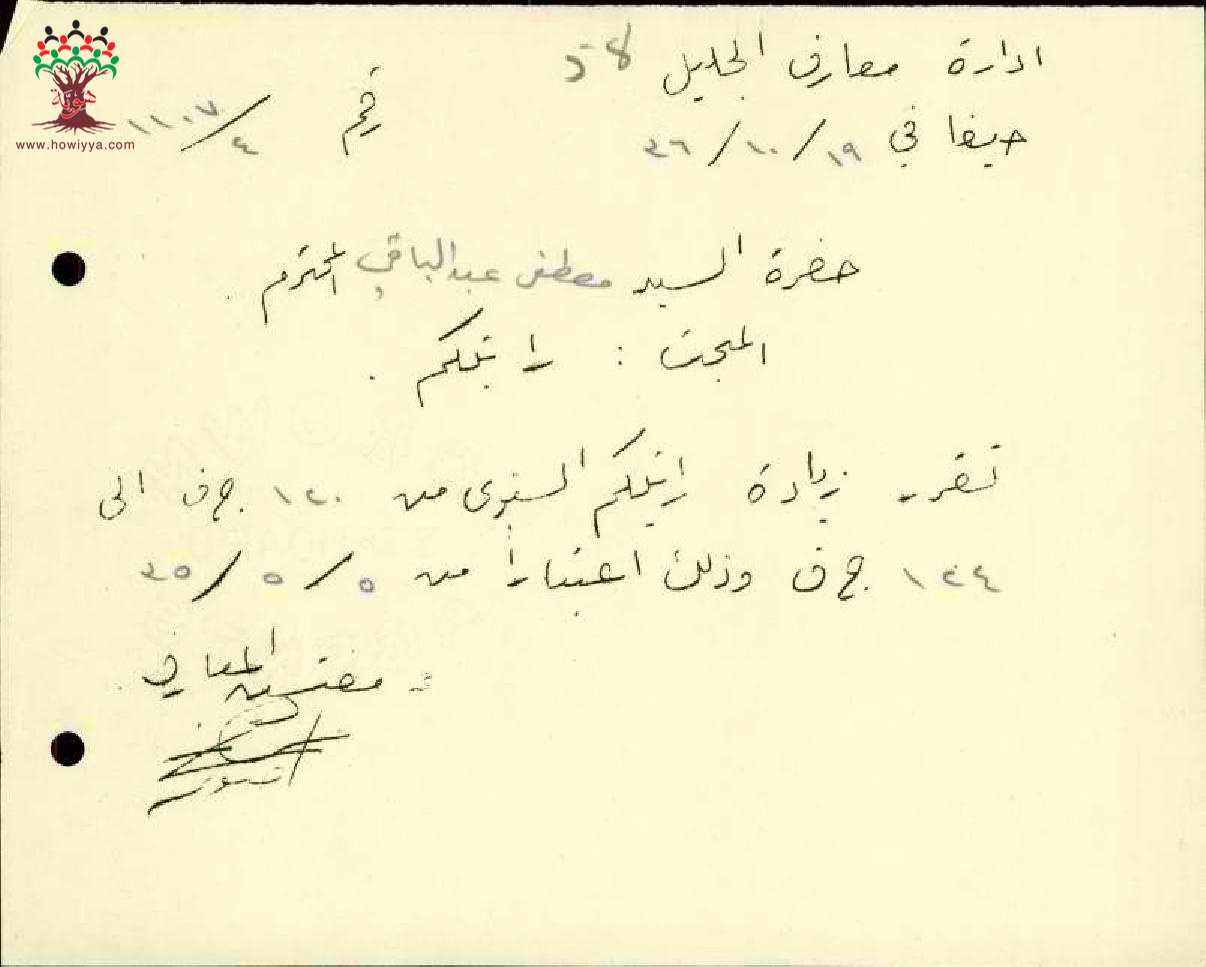 ادارة معارف الجليل
حيفا في ١٩/١٠/٣٦
رقم ٤/١١٠٧
هوية
www.howiyya.com
حضرة السيد مصطفى عبد الباقي المحترم
المبحث : راتبكم .
تقرر زيادة راتبكم السنوي من ١٢٠ ج ف الى
١٢٤ ج ف وذلك اعتباراً من ٥/٥/٣٥
مفتش المعارف